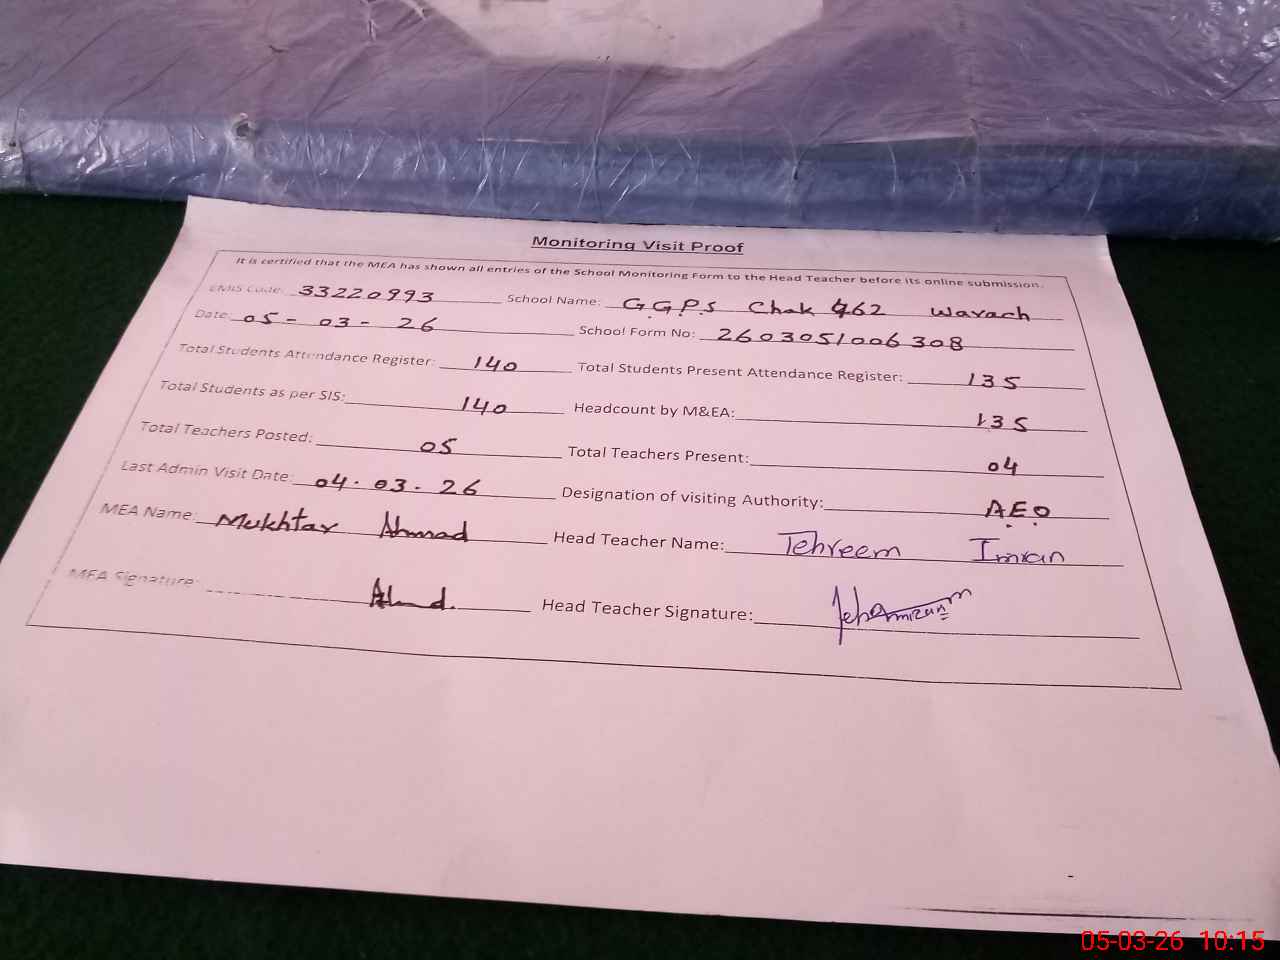 Monitoring Visit Proof
It is certified that the MEA has shown all entries of the School Monitoring Form to the Head Teacher before its online submission.
EMIS Code: 33220993 School Name: G.G.P.S Chak 462 Warach
Date: 05-03-26 School Form No: 2603051006308
Total Students Attendance Register: 140 Total Students Present Attendance Register: 135
Total Students as per SIS: 140 Headcount by M&EA: 135
Total Teachers Posted: 05 Total Teachers Present: 04
Last Admin Visit Date: 04.03.26 Designation of visiting Authority: A.E.O
MEA Name: Mukhtar Ahmad Head Teacher Name: Tehreem Imran
MEA Signature: Head Teacher Signature:
05-03-26 10:15